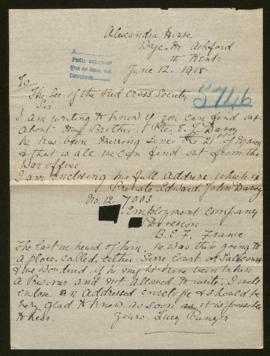 Alexandra House
Wye. Nr Ashford
Kent
June 12. 1918
To
The Sec of the Red Cross Society
Sir
I am writing to know if you can find out
about my Brother. Pte. E. J. Davey
he has been missing since the 21st of March
& that is all we can find out from the
War office
I am enclosing his full address which is
Private Edward John Davey
No. 7003
Employment Company
B. E. F. France
The last we heard of him, he was then going to
a place called either
& we wondered if he might have been taken
a Prisoner and not allowed to write. I will
enclose an addressed envelope & should be
very glad to know as soon as it is possible
to hear.
yours Lucy